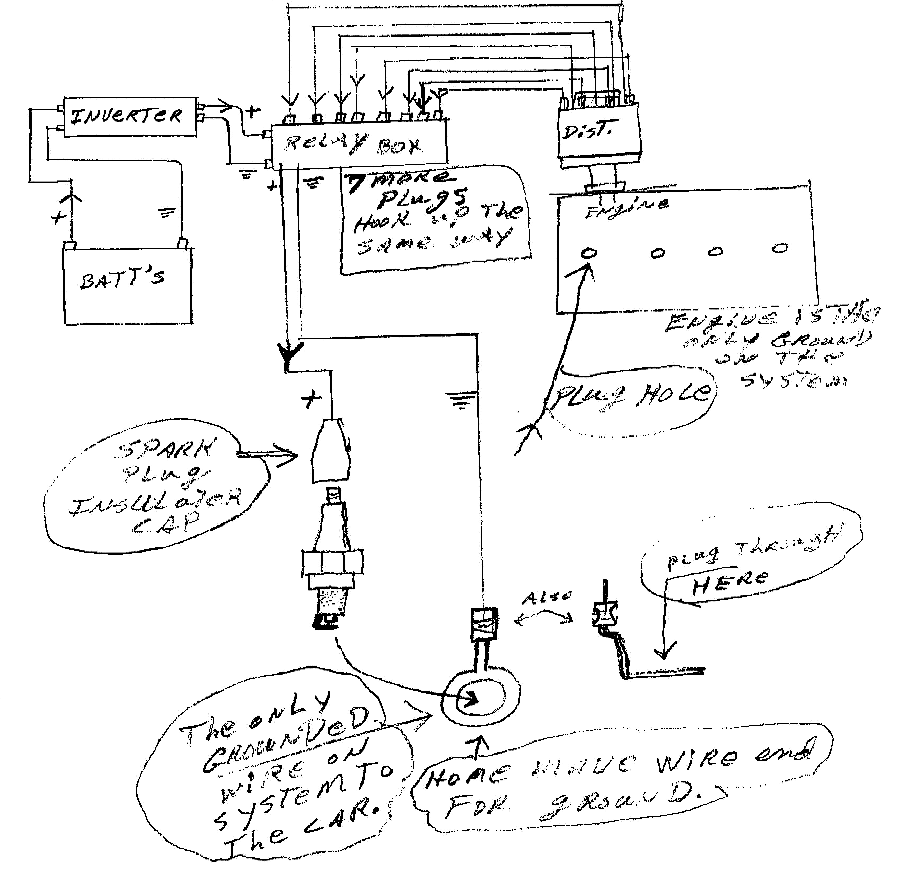 INVERTER
+
RELAY BOX
DIST.
+
7 MORE
PLUGS
HOOK UP THE
SAME WAY
ENGINE
+
BATT'S
ENGINE IS THE
ONLY GROUND
ON THE
SYSTEM
PLUG HOLE
+
SPARK
PLUG
INSULATER
CAP
PLUG THROUGH
HERE
ALSO
The ONLY
GROUNDED
WIRE ON
SYSTEM TO
The CAR.
HOME MAVUE WIRE end
FOR GROUND.